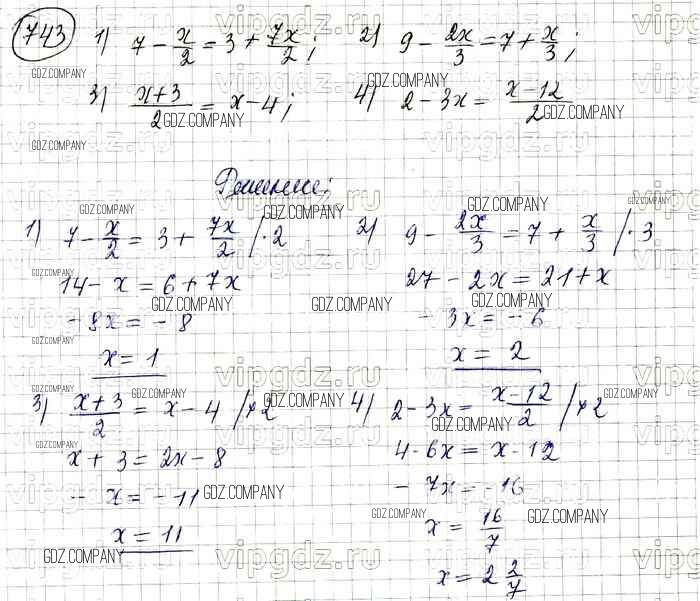 743 1) 7 - x/2 = 3 + 7x/2; 2) 9 - 2x/3 = 7 + x/3;
3) (x+3)/2 = x - 4; 4) 2 - 3x = (x-12)/2
Решение:
1) 7 - x/2 = 3 + 7x/2 /·2
14 - x = 6 + 7x
- 8x = - 8
x = 1
2) 9 - 2x/3 = 7 + x/3 /·3
27 - 2x = 21 + x
- 3x = - 6
x = 2
3) (x+3)/2 = x - 4 /×2
x + 3 = 2x - 8
- x = - 11
x = 11
4) 2 - 3x = (x-12)/2 /×2
4 - 6x = x - 12
- 7x = - 16
x = 16/7
x = 2 2/7
GDZ.COMPANY
vipgdz.ru